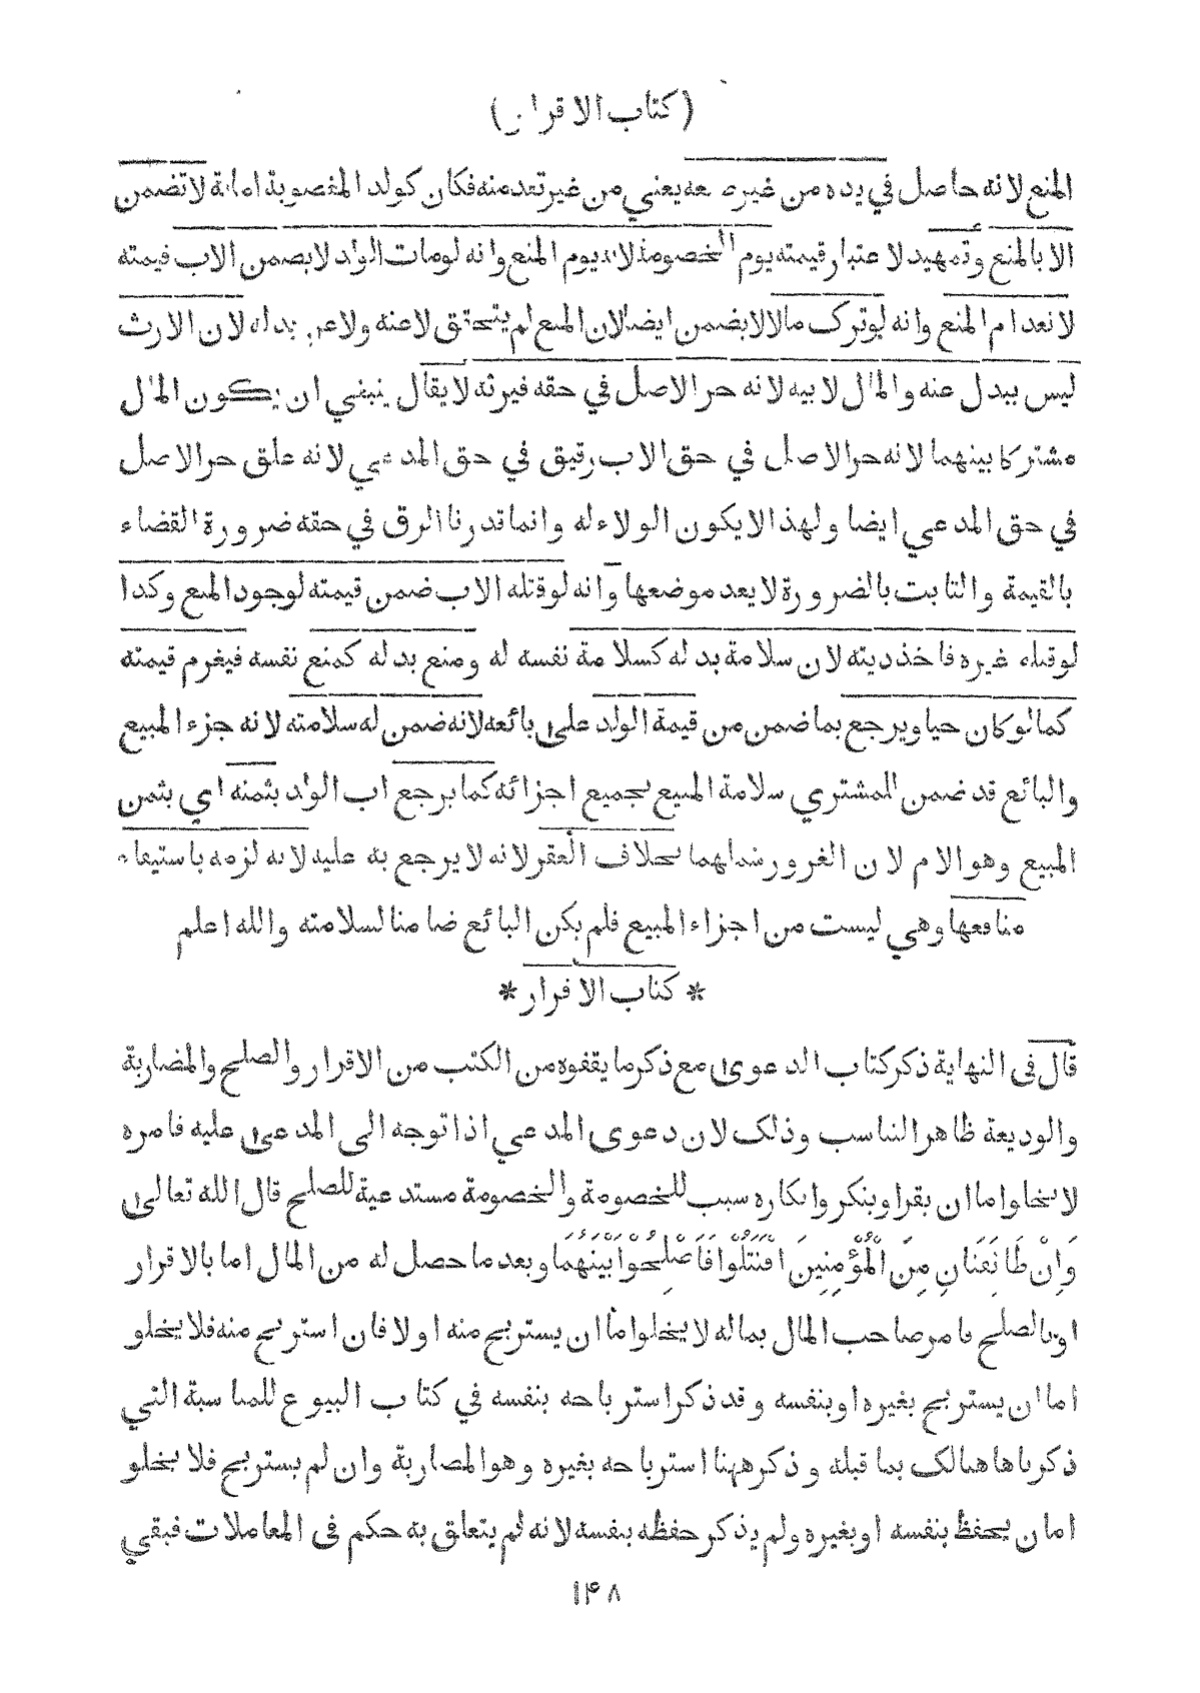 (كتاب الاقرار)
المنع لانه حاصل في يده من غير صنعه يعني من غير تعد منه فكان كولد المغصوبة امانة لا تضمن
الا بالمنع وتمهيد لاعتبار قيمته يوم الخصومة لانه يوم المنع وانه لو مات الولد لا يضمن الاب قيمته
لانعدام المنع وانه لو ترك مالا لا يضمن ايضا لان المنع لم يتحقق لا عنه ولا عن بدله لان الارث
ليس ببدل عنه والمال لابيه لانه حر الاصل في حقه فيرثه لا يقال ينبغي ان يكون المال
مشتركا بينهما لانه حر الاصل في حق الاب رقيق في حق المدعي لانه علق حر الاصل
في حق المدعي ايضا ولهذا لا يكون الولاء له وانما قدرنا الرق في حقه ضرورة القضاء
بالقيمة والثابت بالضرورة لا يعد موضعها وانه لو قتله الاب ضمن قيمته لوجود المنع وكذا
لو قتله غيره فاخذ ديته لان سلامة بدله كسلامة نفسه له ومنع بدله كمنع نفسه فيغرم قيمته
كما لو كان حيا ويرجع بما ضمن من قيمة الولد على بائعه لانه ضمن له سلامته لانه جزء المبيع
والبائع قد ضمن للمشتري سلامة المبيع بجميع اجزائه كما يرجع اب الولد بثمنه اي بثمن
المبيع وهو الام لان الغرور شملهما بخلاف العقر لانه لا يرجع به عليه لانه لزمه باستيفاء
منافعها وهي ليست من اجزاء المبيع فلم يكن البائع ضامنا لسلامته والله اعلم
* كتاب الاقرار *
قال فى النهاية ذكر كتاب الدعوى مع ذكر ما يقفوه من الكتب من الاقرار والصلح والمضاربة
والوديعة ظاهر التناسب وذلك لان دعوى المدعي اذا توجه الى المدعى عليه فامره
لا يخلوا ما ان يقر او ينكر وانكاره سبب للخصومة والخصومة مستدعية للصلح قال الله تعالى
وَاِنْ طَائِفَتَانِ مِنَ الْمُؤْمِنِينَ اقْتَتَلُوا فَاَصْلِحُوا بَيْنَهُمَا وبعد ما حصل له من المال اما بالاقرار
او بالصلح فامر صاحب المال بماله لا يخلوا ما ان يستربح منه او لا فان استربح منه فلا يخلو
اما ان يستربح بغيره او بنفسه وقد ذكر استرباحه بنفسه في كتاب البيوع للمناسبة التي
ذكرناها هنالك بما قبله وذكر ههنا استرباحه بغيره وهو المضاربة وان لم يستربح فلا يخلو
اما ن يحفظ بنفسه او بغيره ولم يذكر حفظه بنفسه لانه لم يتعلق به حكم فى المعاملات فبقي
۱۴۸